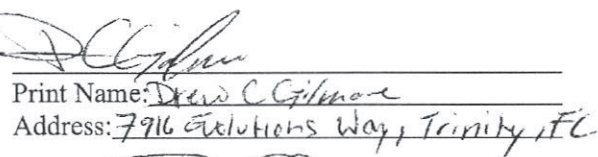 DCGilmore
Print Name: Drew C Gilmore
Address: 7916 Evolutions Way, Trinity, FL